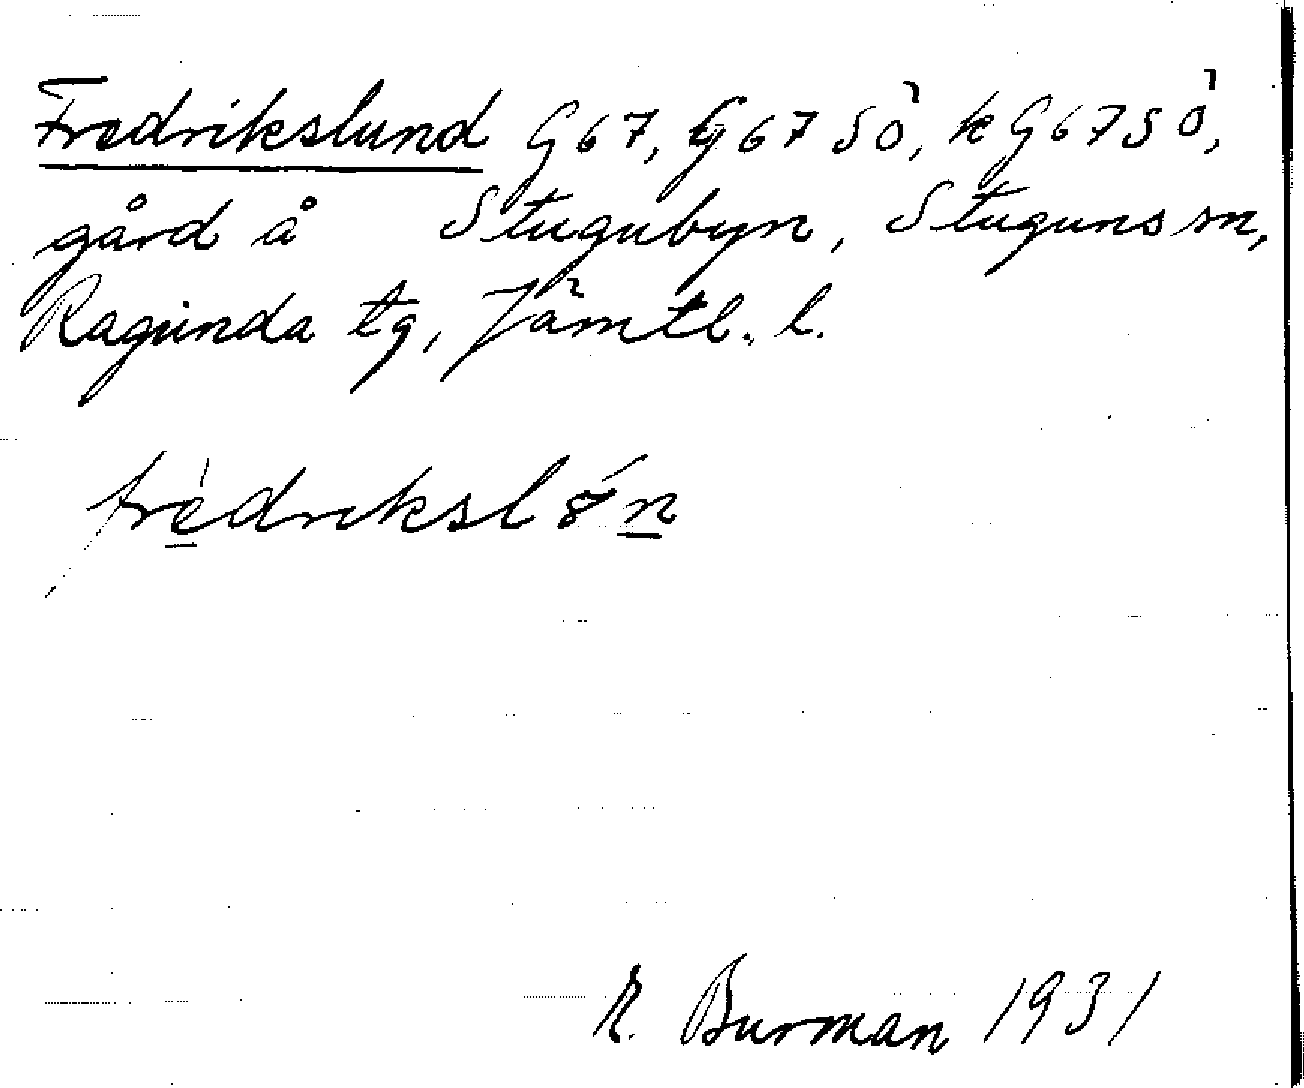 Fredrikslund G67, Eg67 SÖ, k G67 SÖ,
gård å Stugubyn, Stuguns sn,
Ragunda tg, Jämtl. l.
frèdriksl
E. Burman 1931